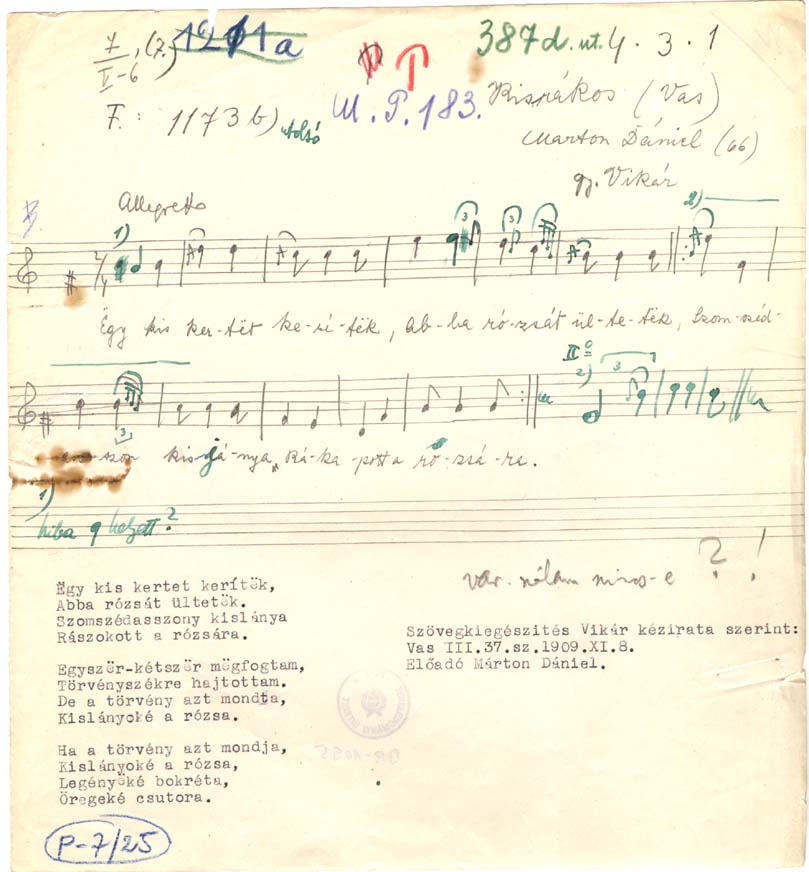 7/II-6, (7.) 1211a
387d. ut. 4.3.1
F.: 1173 b) utolsó
M. P. 183.
Kisrákos (Vas)
Márton Dániel (66)
gy. Vikár
Allegretto
1) 3 3 2)
Ëgy kis ker-tët ke-rí-tëk, ab-ba ró-zsát ül-te-tëk, Szom-széd-
II° 2) 3
3
asz-szon kis-já-nya Rá-ka-pott a ró-zsá-ra.
1)
hiba q helyett?
var. nálam nincs-e ?!
Ëgy kis kertet kerítëk,
Abba rózsát ültetëk.
Szomszédasszony kislánya
Rászokott a rózsára.
Egyszër-kétszër mëgfogtam,
Törvényszékre hajtottam.
De a törvény azt mondta,
Kislányoké a rózsa.
Ha a törvény azt mondja,
Kislányoké a rózsa,
Legényëké bokréta,
Öregeké csutora.
Szövegkiegészítés Vikár kézirata szerint:
Vas III.37.sz.1909.XI.8.
Előadó Márton Dániel.
P-7/25